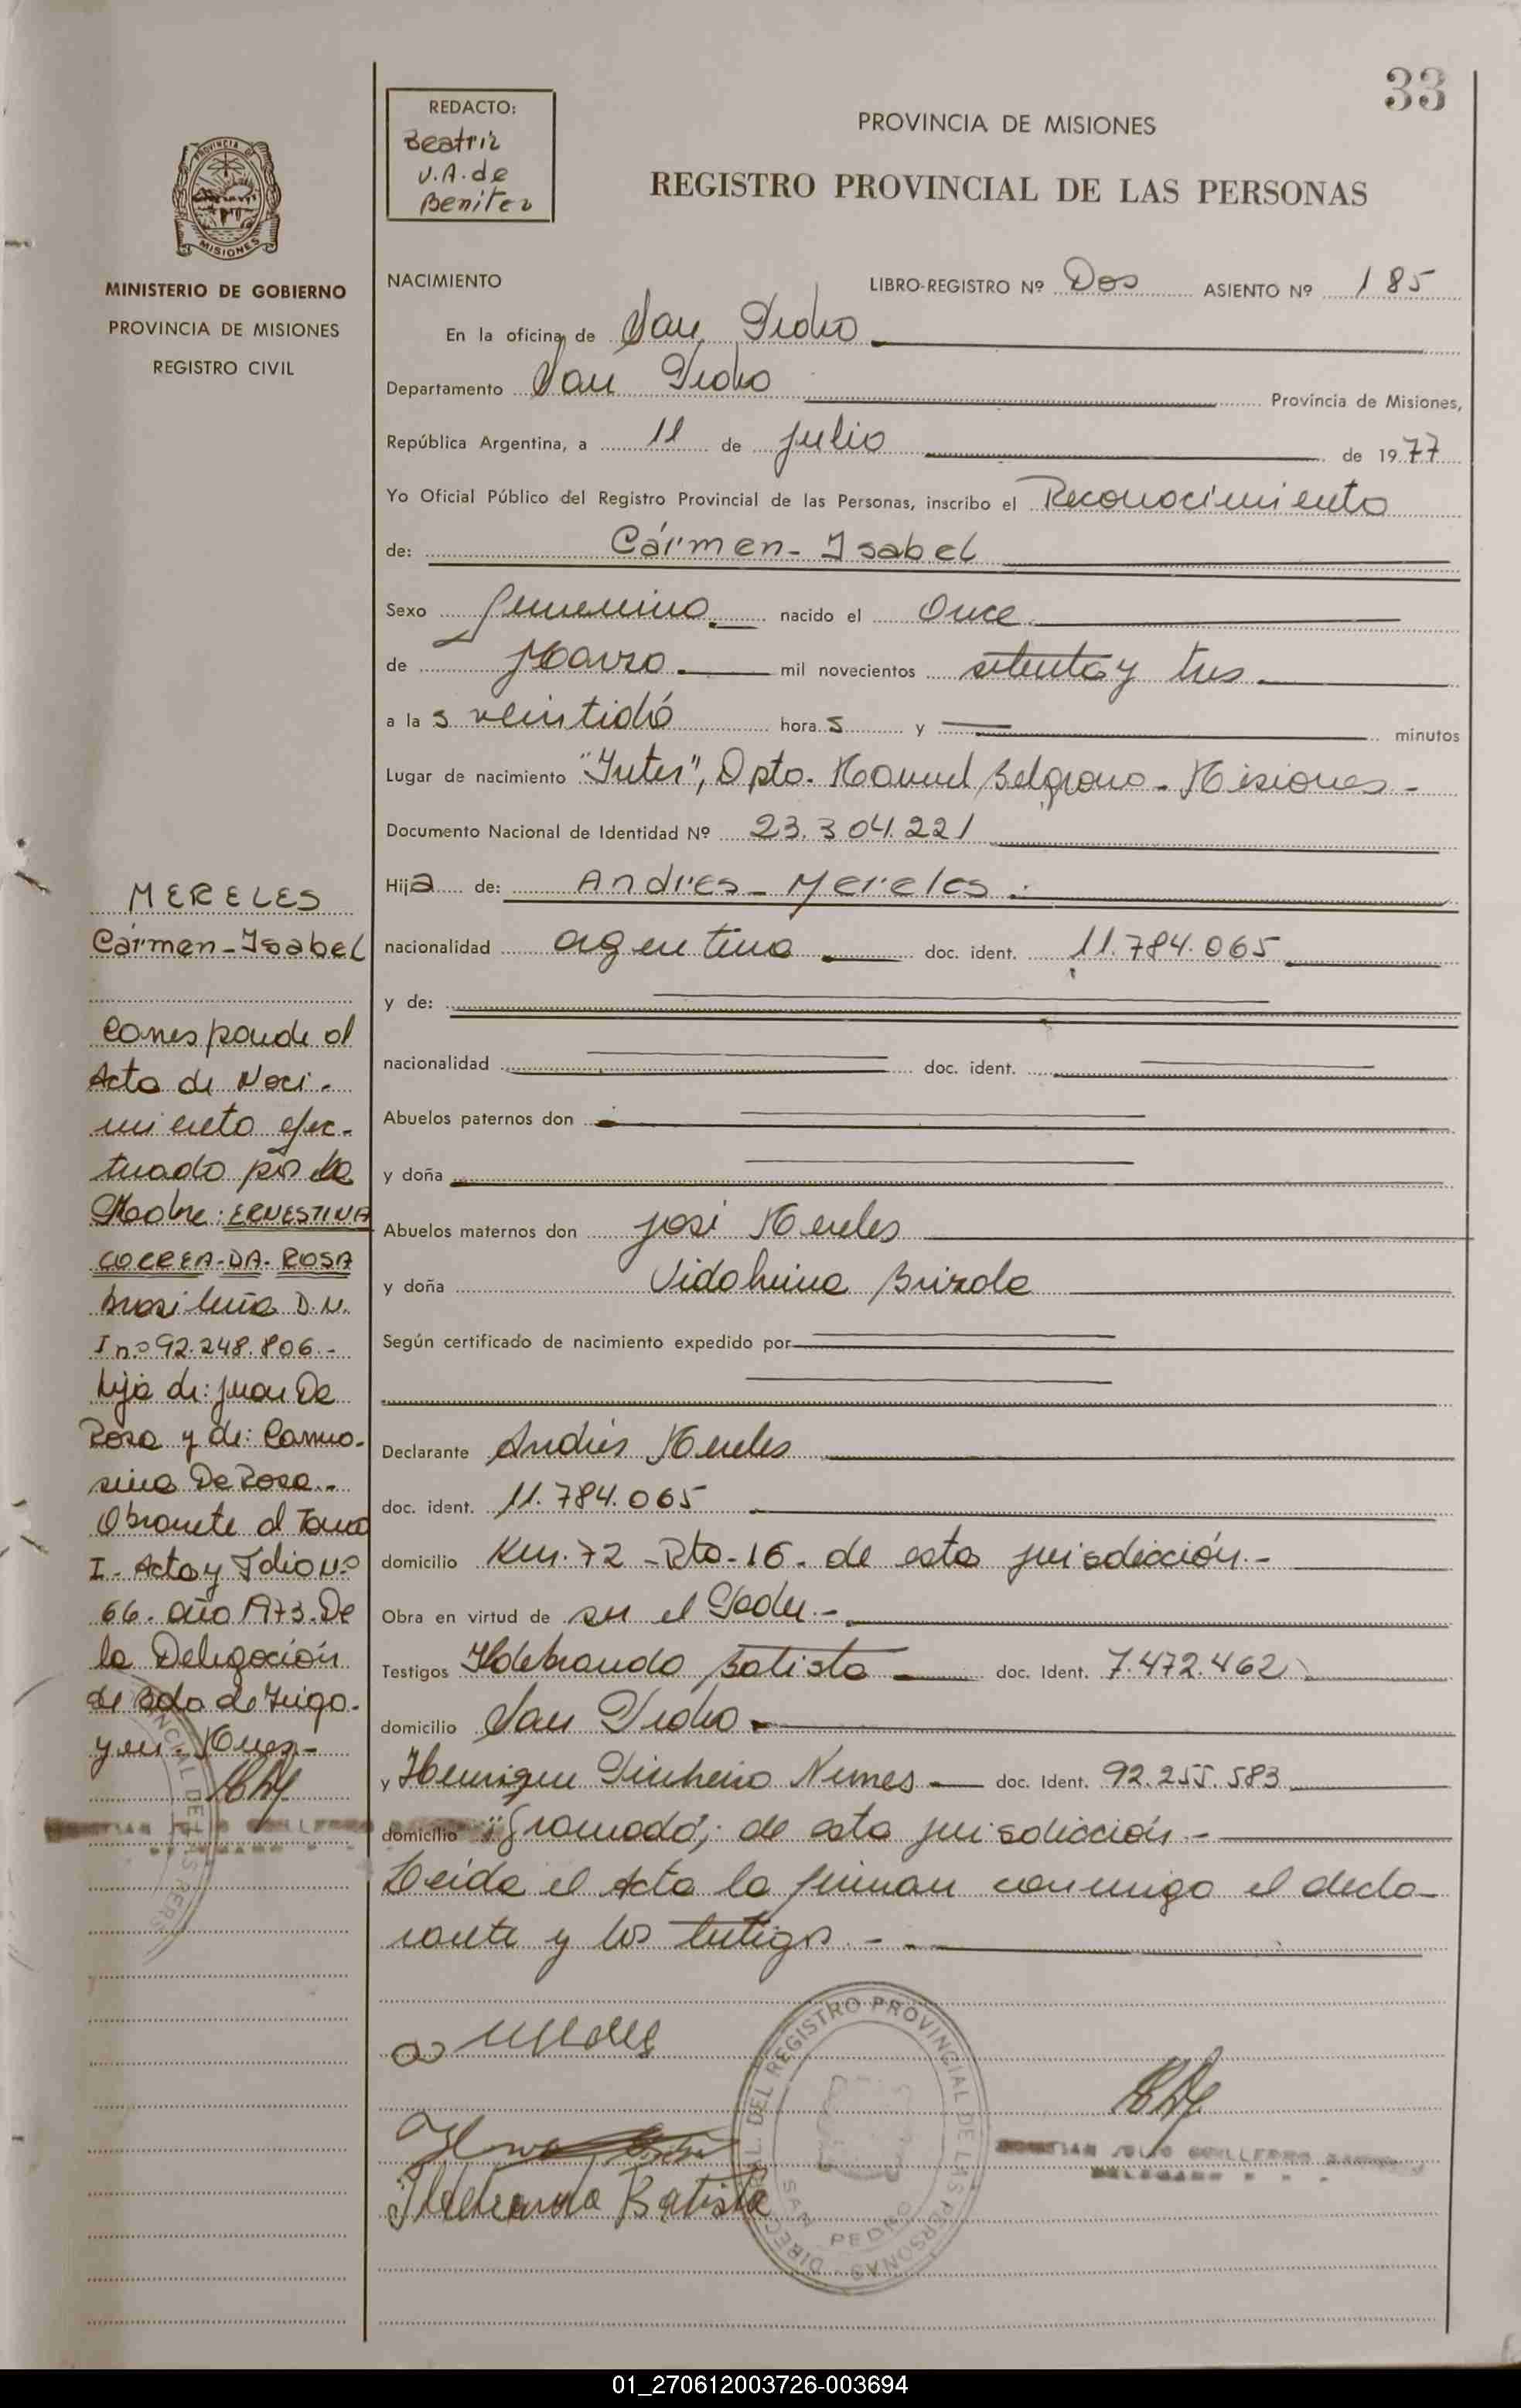 33
REDACTO:
Beatriz
V.A. de
Benitez
PROVINCIA DE MISIONES
REGISTRO PROVINCIAL DE LAS PERSONAS
PROVINCIA DE
MISIONES
MINISTERIO DE GOBIERNO
PROVINCIA DE MISIONES
REGISTRO CIVIL
NACIMIENTO LIBRO-REGISTRO Nº Dos ASIENTO Nº 185
En la oficina de San Pedro
Departamento San Pedro Provincia de Misiones,
República Argentina, a 11 de julio de 1977
Yo Oficial Público del Registro Provincial de las Personas, inscribo el Reconocimiento
de: Cármen-Isabel
Sexo femenino nacido el Once
de Marzo mil novecientos setenta y tres
a las veintidó horas y minutos
Lugar de nacimiento Dpto. Manuel Belgrano - Misiones -
Documento Nacional de Identidad Nº 23.304.221
Hija de: Andres - Mereles
nacionalidad argentino doc. ident. 11.784.065
y de:
nacionalidad doc. ident.
Abuelos paternos don
y doña
Abuelos maternos don José Mereles
y doña Brizola
Según certificado de nacimiento expedido por
Declarante Andrés Mereles
doc. ident. 11.784.065
domicilio Km. 72 - Rta - 16 - de esta jurisdicción.-
Obra en virtud de ser el Padre.-
Testigos Ildebrando Batista doc. Ident. 7.472.462
domicilio San Pedro
y Henrique Pinheiro Nunes doc. Ident. 92.255.583
domicilio "Gramado", de esta jurisdicción.-
Leída el Acta la firman conmigo el decla-
rante y los testigos.-
MERELES
Cármen-Isabel
Corresponde al
Acta de Naci-
miento efec-
tuado por la
Madre: ERNESTINA
CORREA-DA-ROSA
Brasileña D.N.
I nº 92.248.806.-
hija de: Juan Da
Rosa y de:
Da Rosa.-
Obrante al Tomo
I - Acta y Folio Nº
66. año 1973. De
la Delegación
de Bdo de Irigo-
yen - Mnes.-
Ildebrando Batista
DIRECC. DEL REGISTRO PROVINCIAL DE LAS PERSONAS
SAN PEDRO
JULIO GUILLERMO
01_270612003726-003694